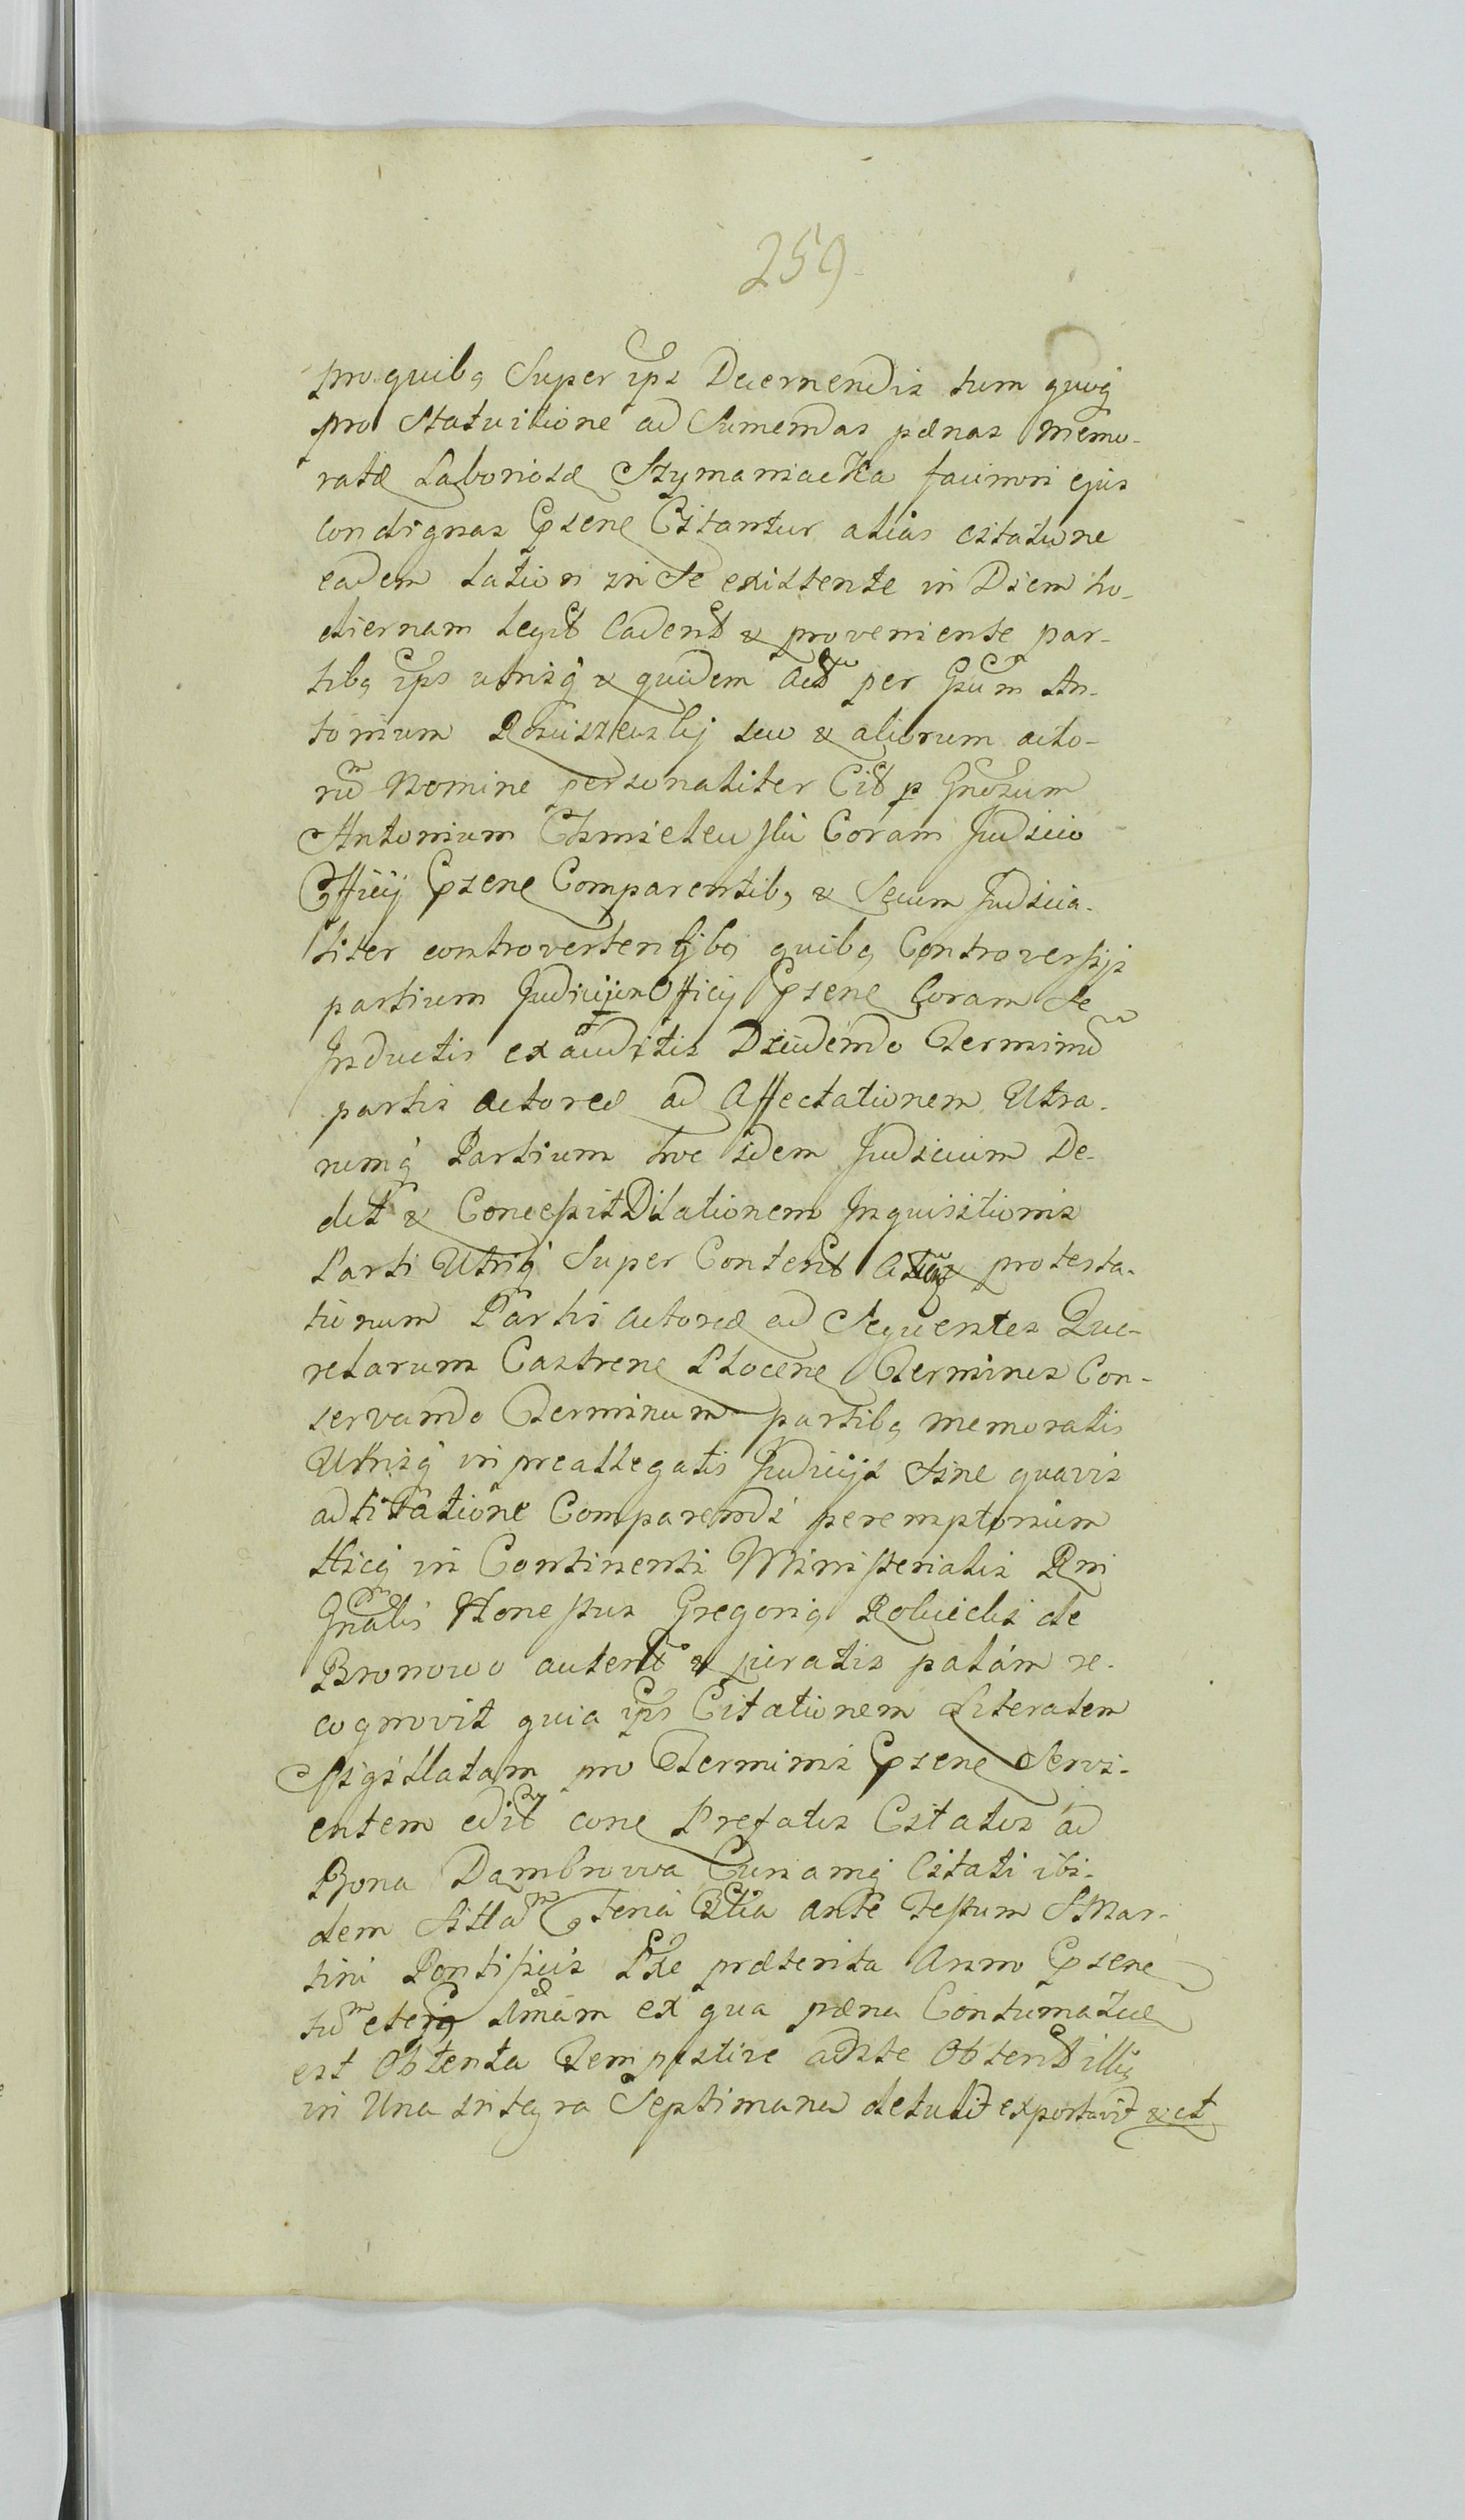 259
pro quibq Super ips Decernendis tum quoq
pro Statuitione ad Sumendas pænas memo-
ratæ Laboriosæ Szymaniacka facinori ejus
condignas Cpsene Citantur alias citatione
eadem latiori in Se existente in Diem ho-
diernam legit Cadent & proveniente par-
tibq ips utrisq & quidem Act per Gsum An-
tonium suo & aliorum acto-
ru Nomine personaliter Cit p Gnosum
Antonium Chmielewski Coram Judicio
Officij Cpsene Comparentibq & Secum Judicia-
liter controvertentibq quibq Controversijs
partium Judicium Officij Cpsene Coram Se
Inductis exauditis Decidendo Terminu
partis actoreæ ad Affectationem Utra-
rumq Partium hoc idem Judicium De-
dit & Concessit Dilationem Inquisitionis
Parti Utriq Super Content protesta-
tionum Partis actoreæ ad Sequentes Que-
relarum Castrene Plocene Terminos Con-
servando Terminum partibq memoratis
Utrisq in preallegatis Judicijs Sine quavis
adcitatione Comparendi peremptorium
Hicq in Continenti Ministerialis Rni
Gnalis Honestus Gregoriq de
Bronowo autent & juratis palam re-
cognovit quia ips Citationem Literalem
Sigillatam pro Terminis Cpsene Servi-
entem edit cone Prefatis Citatis ad
Bona Dambrowa Curiamq Citati ibi-
dem Sitam Feria ante Festum S Mar-
tini Pontificis Pxe præterita Anno Cpsene
tum ex qua pæna Contumatiæ
est Obtenta Tempestive Obtent illiq
in Una integra Septimana detulit exportavit & et